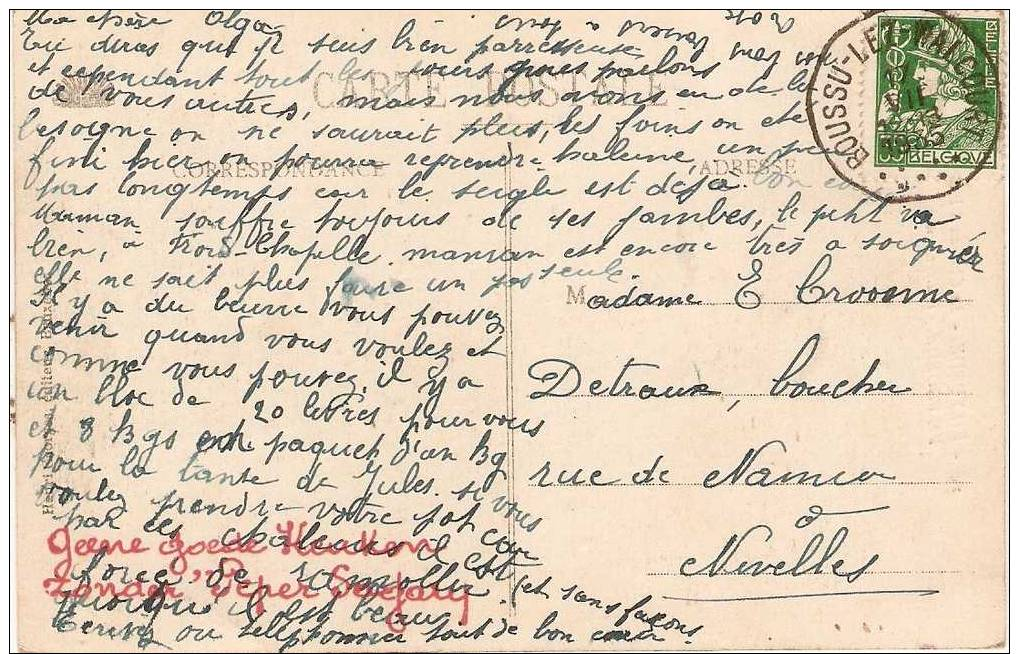 Ma chère Olga
Tu diras que je suis bien parresseuse
et cependant tout les jours nous parlons
de vous autres, mais nous avons eu de la
besogne on ne saurait plus, les foins on été
fini hier on pourra reprendre haleine, un peu
pas longtemps car le seigle est déjà bon
Maman souffre toujours de ses jambes, le petit va
bien, à Froid-Chapelle maman est encore très a soigner
elle ne sait plus faire un pas seule.
Il y a du beurre vous pouvez
venir quand vous voulez et
comme vous pouvez, il y a
un bloc de 20 livres pour vous
et 3 kgs en paquet d'un kg
pour la tante de Jules. si vous
voulez prendre votre pot car
par ces chaleurs il est
forcé de ramollir
quoiqu'il est beau (et sans façons
Ecrivez ou téléphonez tout de bon cœur.
CARTE POSTALE
CORRESPONDANCE
ADRESSE
BOUSSU-LEZ-WALCOURT
1935
BELGIQUE
35
Madame E Crousme
Detraux, boucher
rue de Namur
à
Nivelles
Geene goede Keuken
zonder Peper